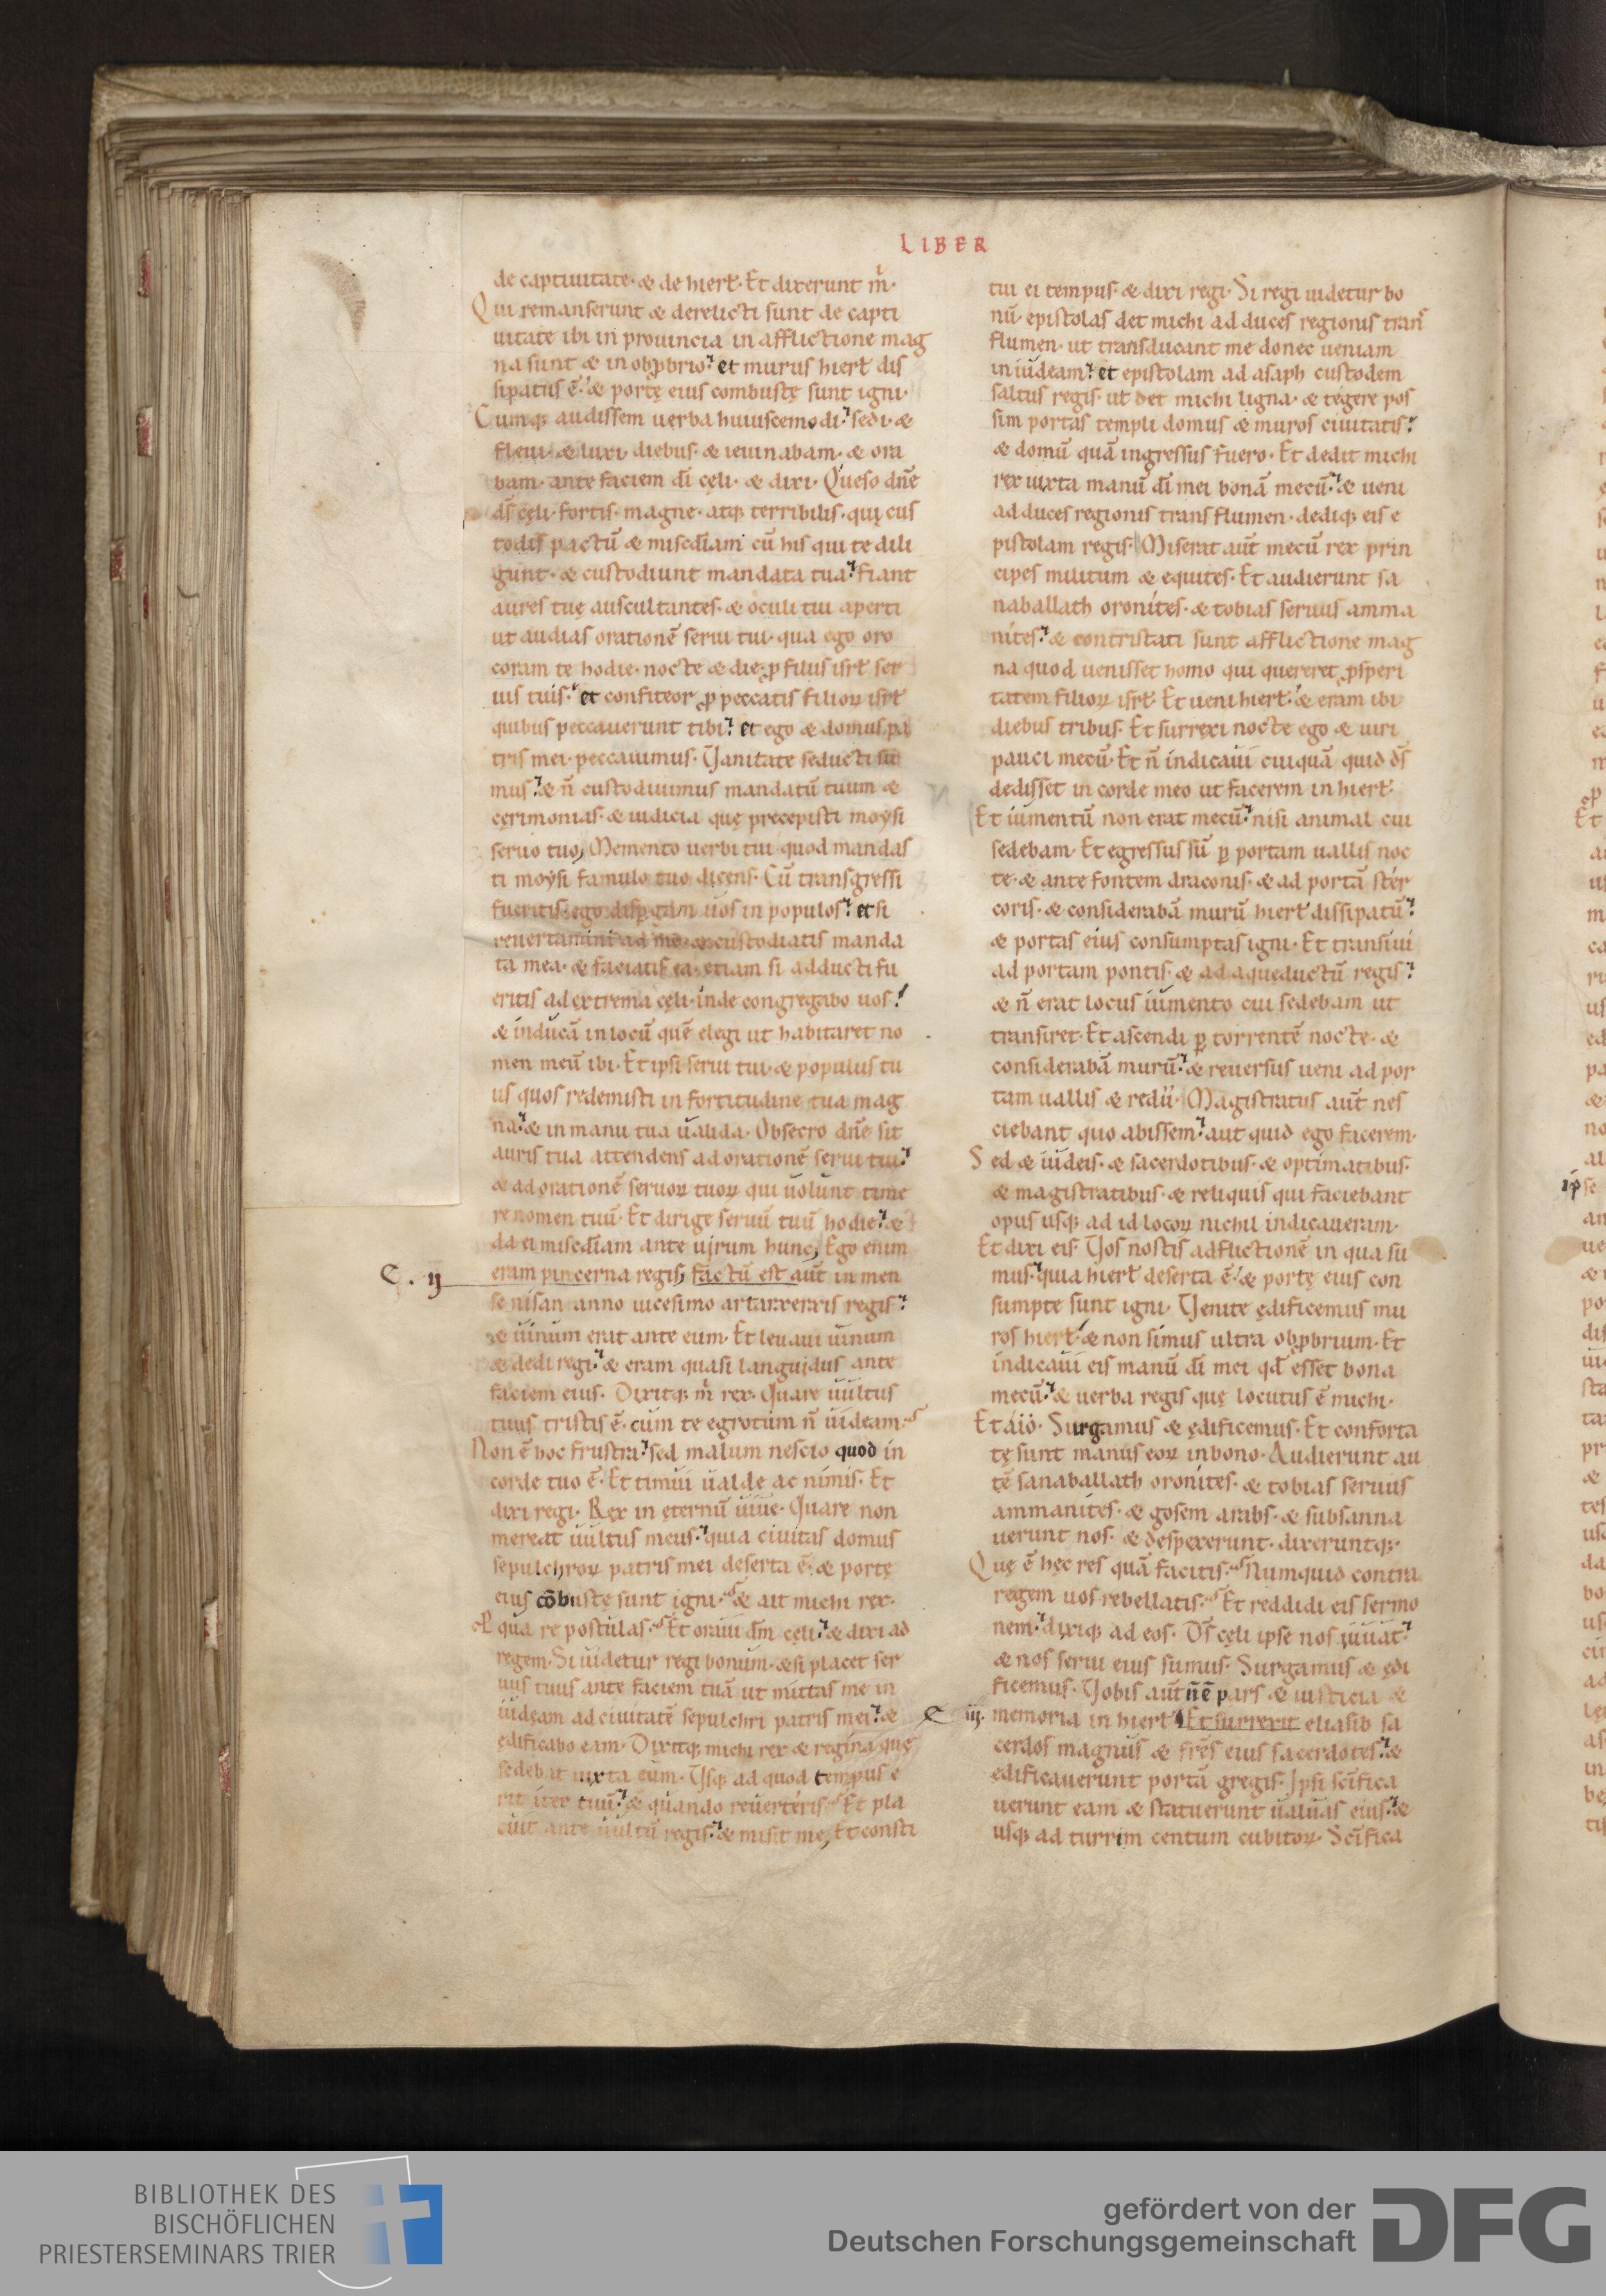 LIBER
de captiuitate· & de hierł· Et dixerunt m̍·
Qui remanserunt & derelicti sunt de capti
uitate ibi in prouincia in afflictione mag
na sunt & in obꝓbrio· et murus hierł dis
sipatus ē· & portę eius combustę sunt igni·
Cumq; audissem uerba huiuscemodi· sedi· &
fleui· & luxi diebus· & ieiunabam· & ora
bam· ante faciem dī cęli· & dixi· Queso dn̄e
ds̄ cęli· fortis· magne· atq; terribilis· qui cus
todis pactū & misc̄diam cū his qui te dili
gunt· & custodiunt mandata tua· fiant
aures tuę auscultantes· & oculi tui aperti
ut audias orationē serui tui· qua ego oro
coram te hodie· nocte & die· ꝓ filiis isrł ser
uis tuis· et confiteor ꝓ peccatis filioꝝ isrł
quibus peccauerunt tibi· et ego & domus pa
tris mei· peccauimus· Vanitate seducti su
mus· & n̄ custodiuimus mandatū tuum &
cęrimonias· & iudicia quę precepisti moysi
seruo tuo, Memento uerbi tui quod mandas
ti moysi famulo tuo dicens· Cū transgressi
fueritis· ego dispgam uos in populos· et si
reuertamini ad me· & custodiatis manda
ta mea· & faciatis ea· etiam si adducti fu
eritis ad extrema cęli· inde congregabo uos·
& inducā in locū quē elegi ut habitaret no
men meū ibi· Et ipsi serui tui· & populus tu
us quos redemisti in fortitudine tua mag
na· & in manu tua ualida· Obsecro dn̄e sit
auris tua attendens ad orationē serui tui·
& ad orationē seruoꝝ tuoꝝ qui uolunt time
re nomen tuū· Et dirige seruū tuū hodie· &
da ei misc̄diam ante uirum hunc, Ego enim
C. ij eram pincerna regis, factū est aūt in men
se nisan anno uicesimo artarxerxis regis·
& uinum erat ante eum· Et leuaui uinum
& dedi regi· & eram quasi languidus ante
faciem eius· Dixitq; m̍ rex· Quare uultus
tuus tristis ē· cum te egrotum n̄ uideam·
Non ē hoc frustra· sed malum nescio quod in
corde tuo ē· Et timui ualde ac nimis· Et
dixi regi· Rex in ęternū uiue· Quare non
mereat uultus meus· quia ciuitas domus
sepulchroꝝ patris mei deserta ē· & portę
eius cōbustę sunt igni· & ait michi rex·
ꝓ qua re postulas· Et oraui dm̄ cęli· & dixi ad
regem· Si uidetur regi bonum· & si placet ser
uus tuus ante faciem tuā ut mittas me in
iudęam ad ciuitatē sepulchri patris mei· &
ędificabo eam· Dixitq; michi rex & regina quę
sedebat iuxta eum· Vsq; ad quod tempus e
rit iter tuū· & quando reuerteris· Et pla
cuit ante uultū regis· & misit me, Et consti
tui ei tempus· & dixi regi· Si regi uidetur bo
nū· epistolas det michi ad duces regionis trans
flumen· ut transducant me donec ueniam
in iudeam· et epistolam ad asaph custodem
saltus regis· ut det michi ligna· & tegere pos
sim portas templi domus & muros ciuitatis·
& domū quā ingressus fuero· Et dedit michi
rex iuxta manū dī mei bonā mecū· & ueni
ad duces regionis trans flumen· dediq; eis e
pistolam regis· Miserat aūt mecū rex prin
cipes militum & equites· Et audierunt sa
naballath oronites· & tobias seruus amma
nites· & contristati sunt afflictione mag
na quod uenisset homo qui quereret ꝓsperi
tatem filioꝝ isrł· Et ueni hierł· & eram ibi
diebus tribus· Et surrexi nocte ego & uiri
pauci mecū· Et n̄ indicaui cuiquā quid ds̄
dedisset in corde meo ut facerem in hierł·
Et iumentū non erat mecū· nisi animal cui
sedebam· Et egressus sū ꝑ portam uallis noc
te· & ante fontem draconis· & ad portā ster
coris· & considerabā murū hierł dissipatū·
& portas eius consumptas igni· Et transiui
ad portam pontis· & ad aqueductū regis·
& n̄ erat locus iumento cui sedebam ut
transiret· Et ascendi ꝑ torrentē nocte· &
considerabā murū· & reuersus ueni ad por
tam uallis & redii· Magistratus aūt nes
ciebant quo abissem· aut quid ego facerem·
Sed & iudeis· & sacerdotibus· & optimatibus·
& magistratibus· & reliquis qui faciebant
opus usq; ad id locoꝝ nichil indicaueram·
Et dixi eis· Vos nostis adflictionē in qua su
mus· quia hierł deserta ē· & portę eius con
sumpte sunt igni· Venite ędificemus mu
ros hierł· & non simus ultra obꝓbrium· Et
indicaui eis manū dī mei qd̄ esset bona
mecū· & uerba regis quę locutus ē michi·
Et aio· Surgamus & ędificemus· Et conforta
tę sunt manus eoꝝ in bono· Audierunt au
tē sanaballath oronites· & tobias seruus
ammanites· & gosem arabs· & subsanna
uerunt nos· & despexerunt· dixeruntq;·
Quę ē hęc res quā facitis· Numquid contra
regem uos rebellatis· Et reddidi eis sermo
nem· dixiq; ad eos· Ds̄ cęli ipse nos iuuat·
& nos serui eius sumus· Surgamus & ędi
ficemus· Vobis aūt n̄ ē pars & iusticia &
C iij. memoria in hierł· Et surrexit eliasib sa
cerdos magnus & fr̄es eius sacerdotes· &
edificauerunt portā gregis· Ipsi sc̄ifica
uerunt eam & statuerunt ualuas eius· &
usq; ad turrim centum cubitoꝝ· Sc̄ifica
BIBLIOTHEK DES
BISCHÖFLICHEN
PRIESTERSEMINARS TRIER
gefördert von der
Deutschen Forschungsgemeinschaft
DFG